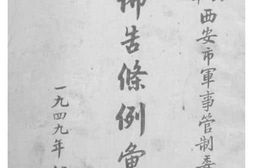 西安市軍事管制委
佈告條例彙
一九四九年